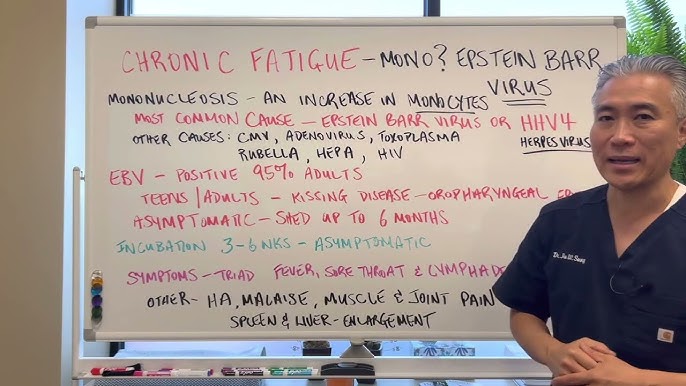 CHRONIC FATIGUE - MONO? EPSTEIN BARR
VIRUS
MONONUCLEOSIS - AN INCREASE IN MONOCYTES
MOST COMMON CAUSE - EPSTEIN BARR VIRUS OR HHV4
HERPESVIRUS
OTHER CAUSES: CMV, ADENOVIRUS, TOXOPLASMA
RUBELLA, HEPA, HIV
EBV - POSITIVE 95% ADULTS
TEENS/ADULTS - KISSING DISEASE - OROPHARYNGEAL
ASYMPTOMATIC - SHED UP TO 6 MONTHS
INCUBATION 3-6 WKS - ASYMPTOMATIC
SYMPTOMS - TRIAD FEVER, SORE THROAT & LYMPHADE
OTHER - HA, MALAISE, MUSCLE & JOINT PAIN
SPLEEN & LIVER - ENLARGEMENT
carhartt